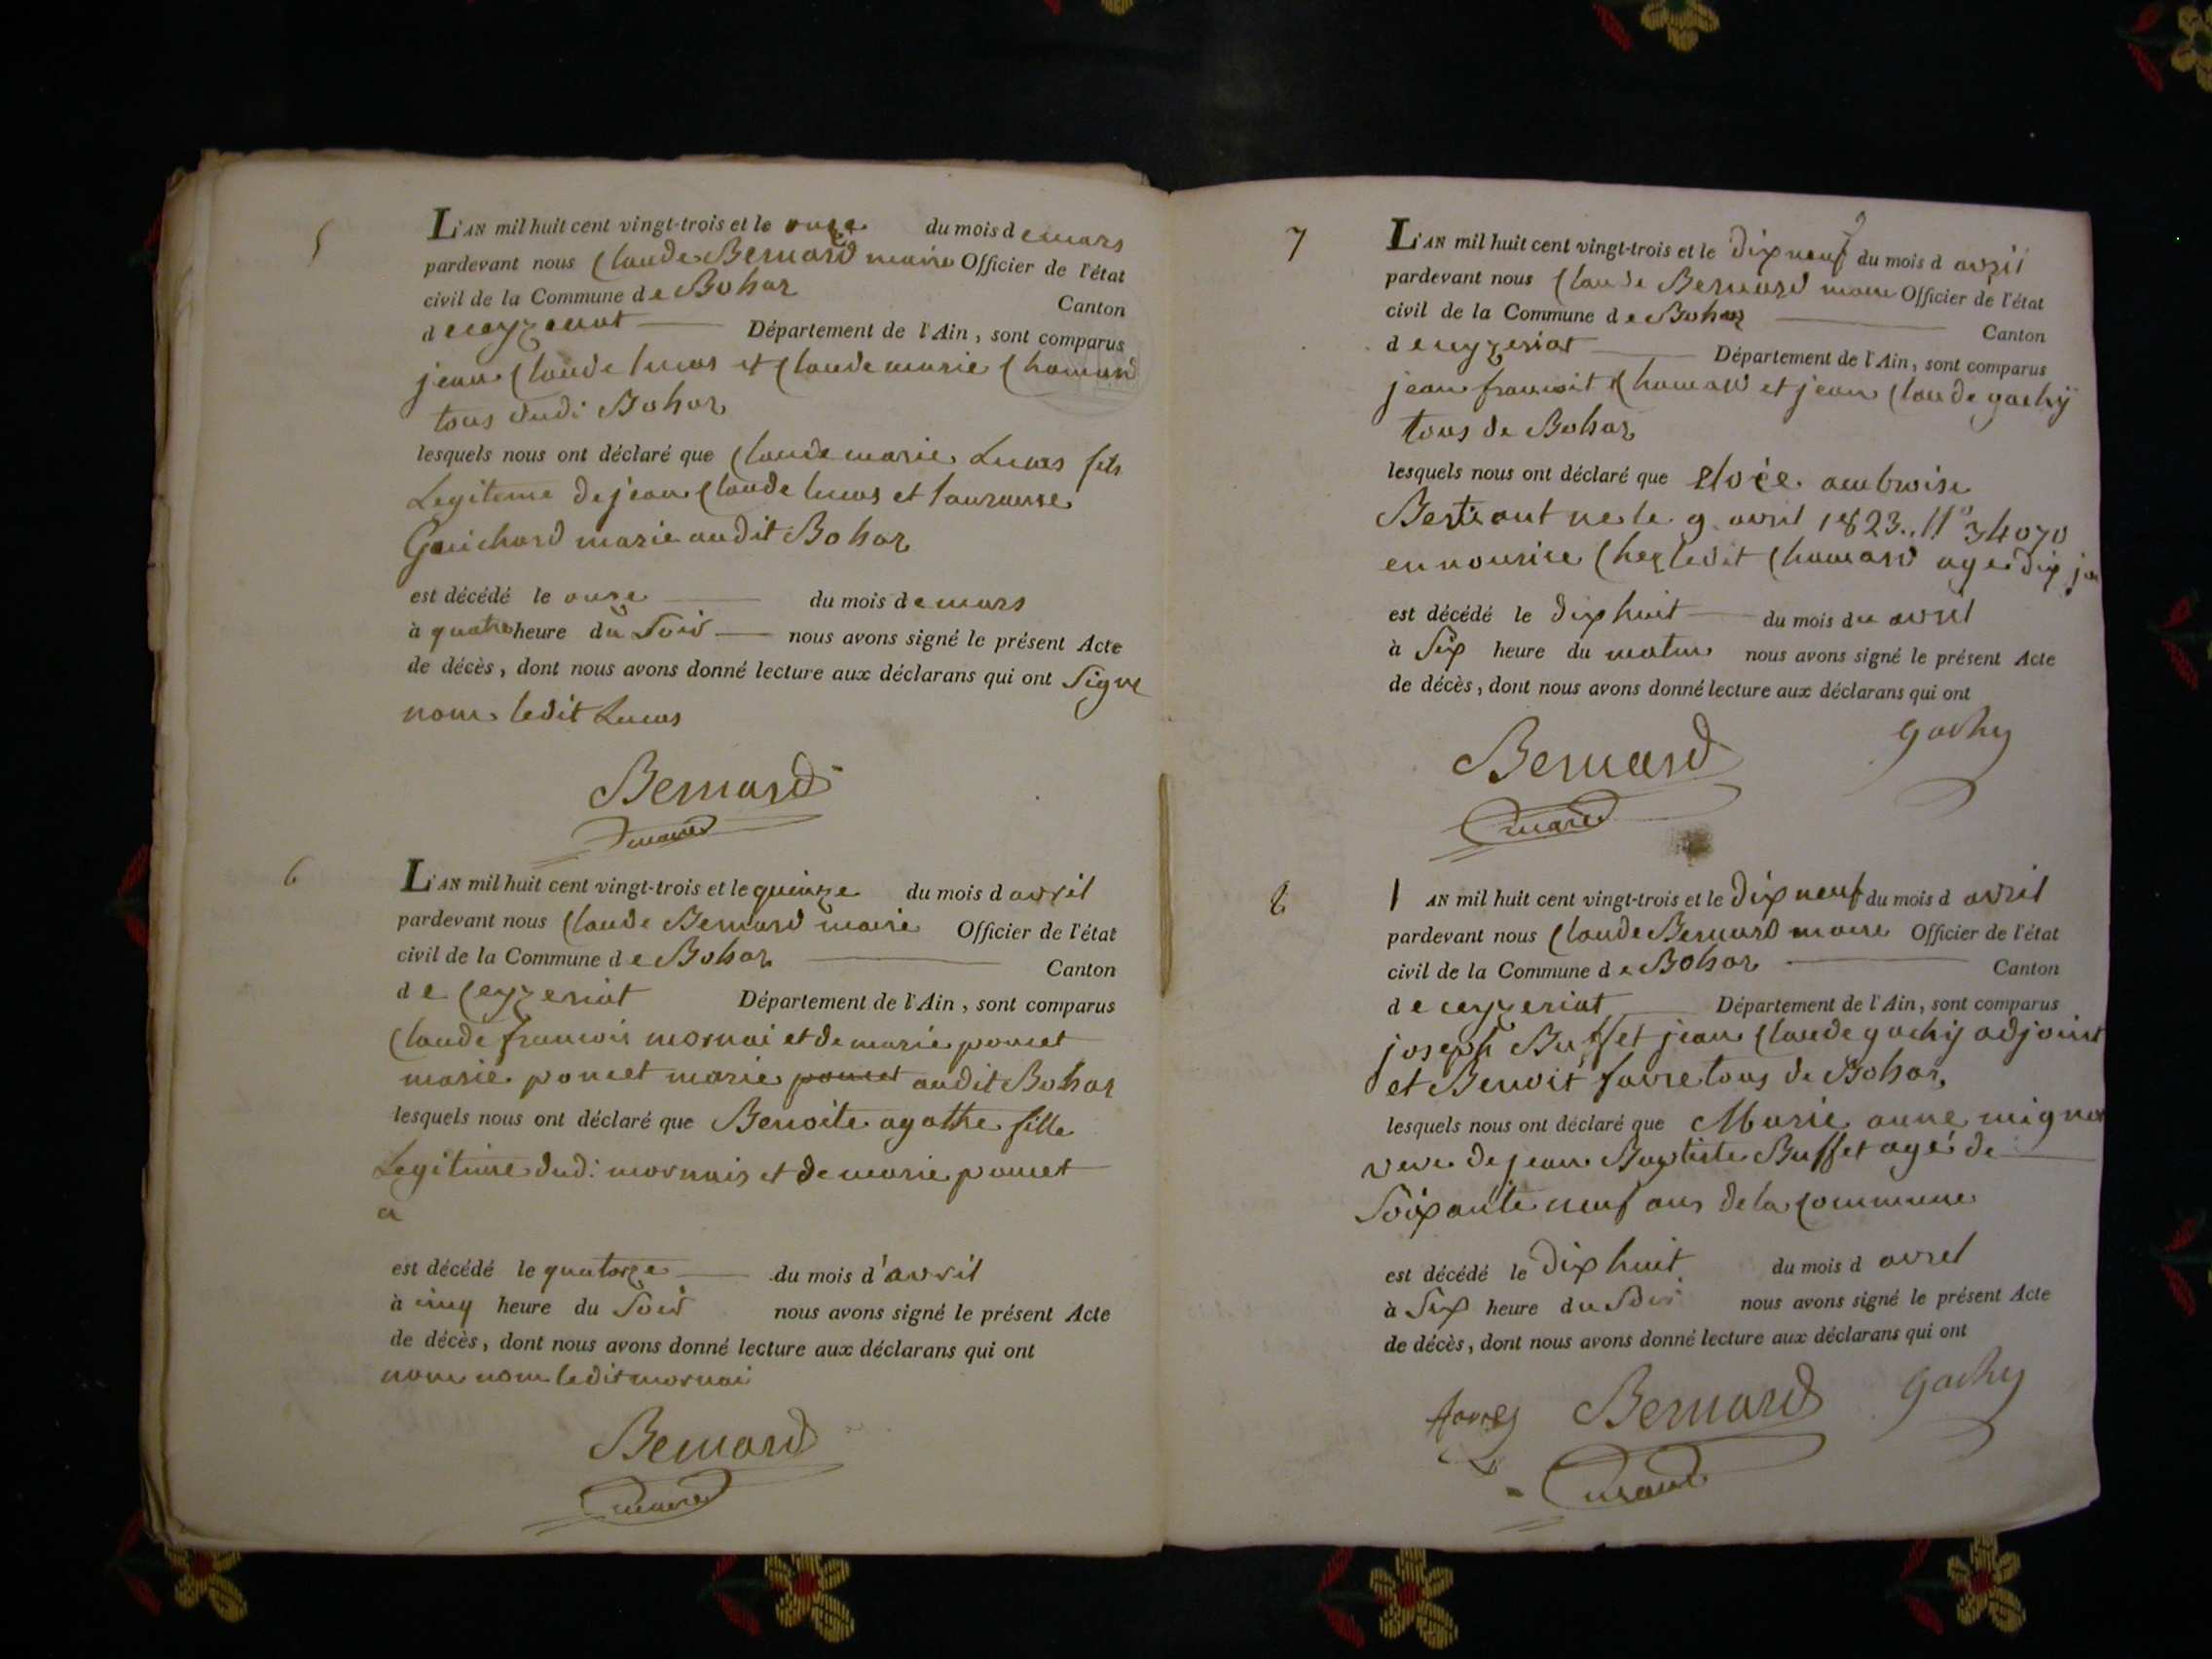 5
L'AN mil huit cent vingt-trois et le onze du mois d e mars
pardevant nous Claude Bernard maire Officier de l'état
civil de la Commune d e Bohas
Canton
d e ceyzeriat Département de l'Ain, sont comparus
jean Claude lucas et Claude marie Chanard
tous dudi Bohas
lesquels nous ont déclaré que Claude marie Lucas fils
Legiteme de jean Claude lucas et
Guichard marie audit Bohas
est décédé le onze du mois d e mars
à quatre heure du Soir nous avons signé le présent Acte
de décès, dont nous avons donné lecture aux déclarans qui ont Signe
nom ledit Lucas
Bernard
maire
6
L'AN mil huit cent vingt-trois et le queinze du mois d avril
pardevant nous Claude Bernard maire Officier de l'état
civil de la Commune d e Bohas
Canton
d e Ceyzeriat Département de l'Ain, sont comparus
Claude francois mornai et de marie poncet
marie poncet marie poncet audit Bohas
lesquels nous ont déclaré que Benoite agathe fille
Legitime dud: mornais et de marie poncet
a
est décédé le quatorze du mois d'avril
à cinq heure du Soir nous avons signé le présent Acte
de décès, dont nous avons donné lecture aux déclarans qui ont
nom nom ledit mornai
Bernard
maire
7
L'AN mil huit cent vingt-trois et le dix neuf du mois d avril
pardevant nous Claude Bernard maire Officier de l'état
civil de la Commune d e Bohas
Canton
d e ceyzeriat Département de l'Ain, sont comparus
jean francoit Chanard et jean Claude gachy
tous de Bohas
lesquels nous ont déclaré que ambroise
ne le 9 avril 1823.. 34070
en nourice Chez ledit Chanard age dix
est décédé le dix huit du mois du avril
à Six heure du matin nous avons signé le présent Acte
de décès, dont nous avons donné lecture aux déclarans qui ont
Bernard gachy
maire
8
AN mil huit cent vingt-trois et le dix neuf du mois d avril
pardevant nous Claude Bernard maire Officier de l'état
civil de la Commune d e Bohas
Canton
d e ceyzeriat Département de l'Ain, sont comparus
joseph Buffet jean Claude gachy adjoint
et Benoit favre tous de Bohas
lesquels nous ont déclaré que Marie anne
veve de jean Baptiste Buffet agé de
Soixante neuf ans de la Commune
est décédé le dix huit du mois d avril
à Six heure du Soir nous avons signé le présent Acte
de décès, dont nous avons donné lecture aux déclarans qui ont
Bernard gachy
maire